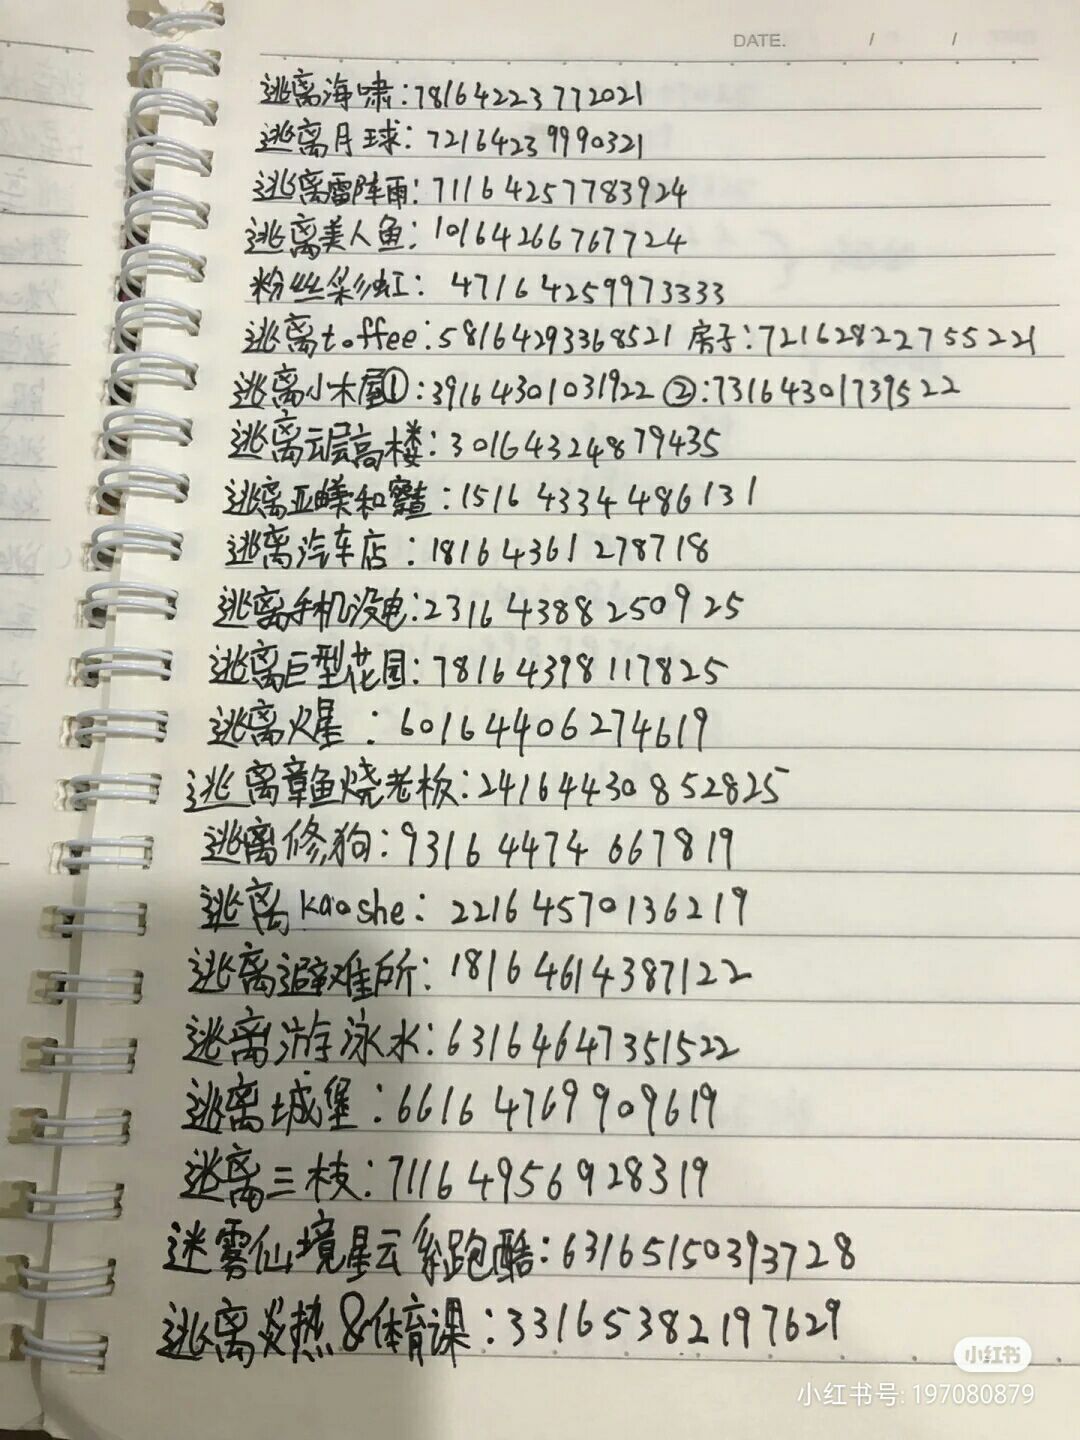 DATE. / /
逃离海啸:78164223772021
逃离月球:72164239990321
逃离雷阵雨:71164257783924
逃离美人鱼:10164266767724
粉丝彩虹:47164259973333
逃离toffee:58164293368521 房子:72162822755221
逃离小木屋①:39164301031922 ②:73164301739522
逃离云层高楼:30164324879435
逃离亚 和 :15164334486131
逃离汽车店:18164361278718
逃离手机没电:23164388250925
逃离巨型花园:78164398117825
逃离火星:60164406274619
逃离章鱼烧老板:24164430852825
逃离修狗:93164474667819
逃离kaoshe:22164570136219
逃离避难所:18164614387122
逃离游泳水:63164647351522
逃离城堡:66164769909619
逃离三枝:71164956928319
迷雾仙境星云系跑酷:63165150393728
逃离炎热&体育课:33165382197629
小红书
小红书号: 197080879